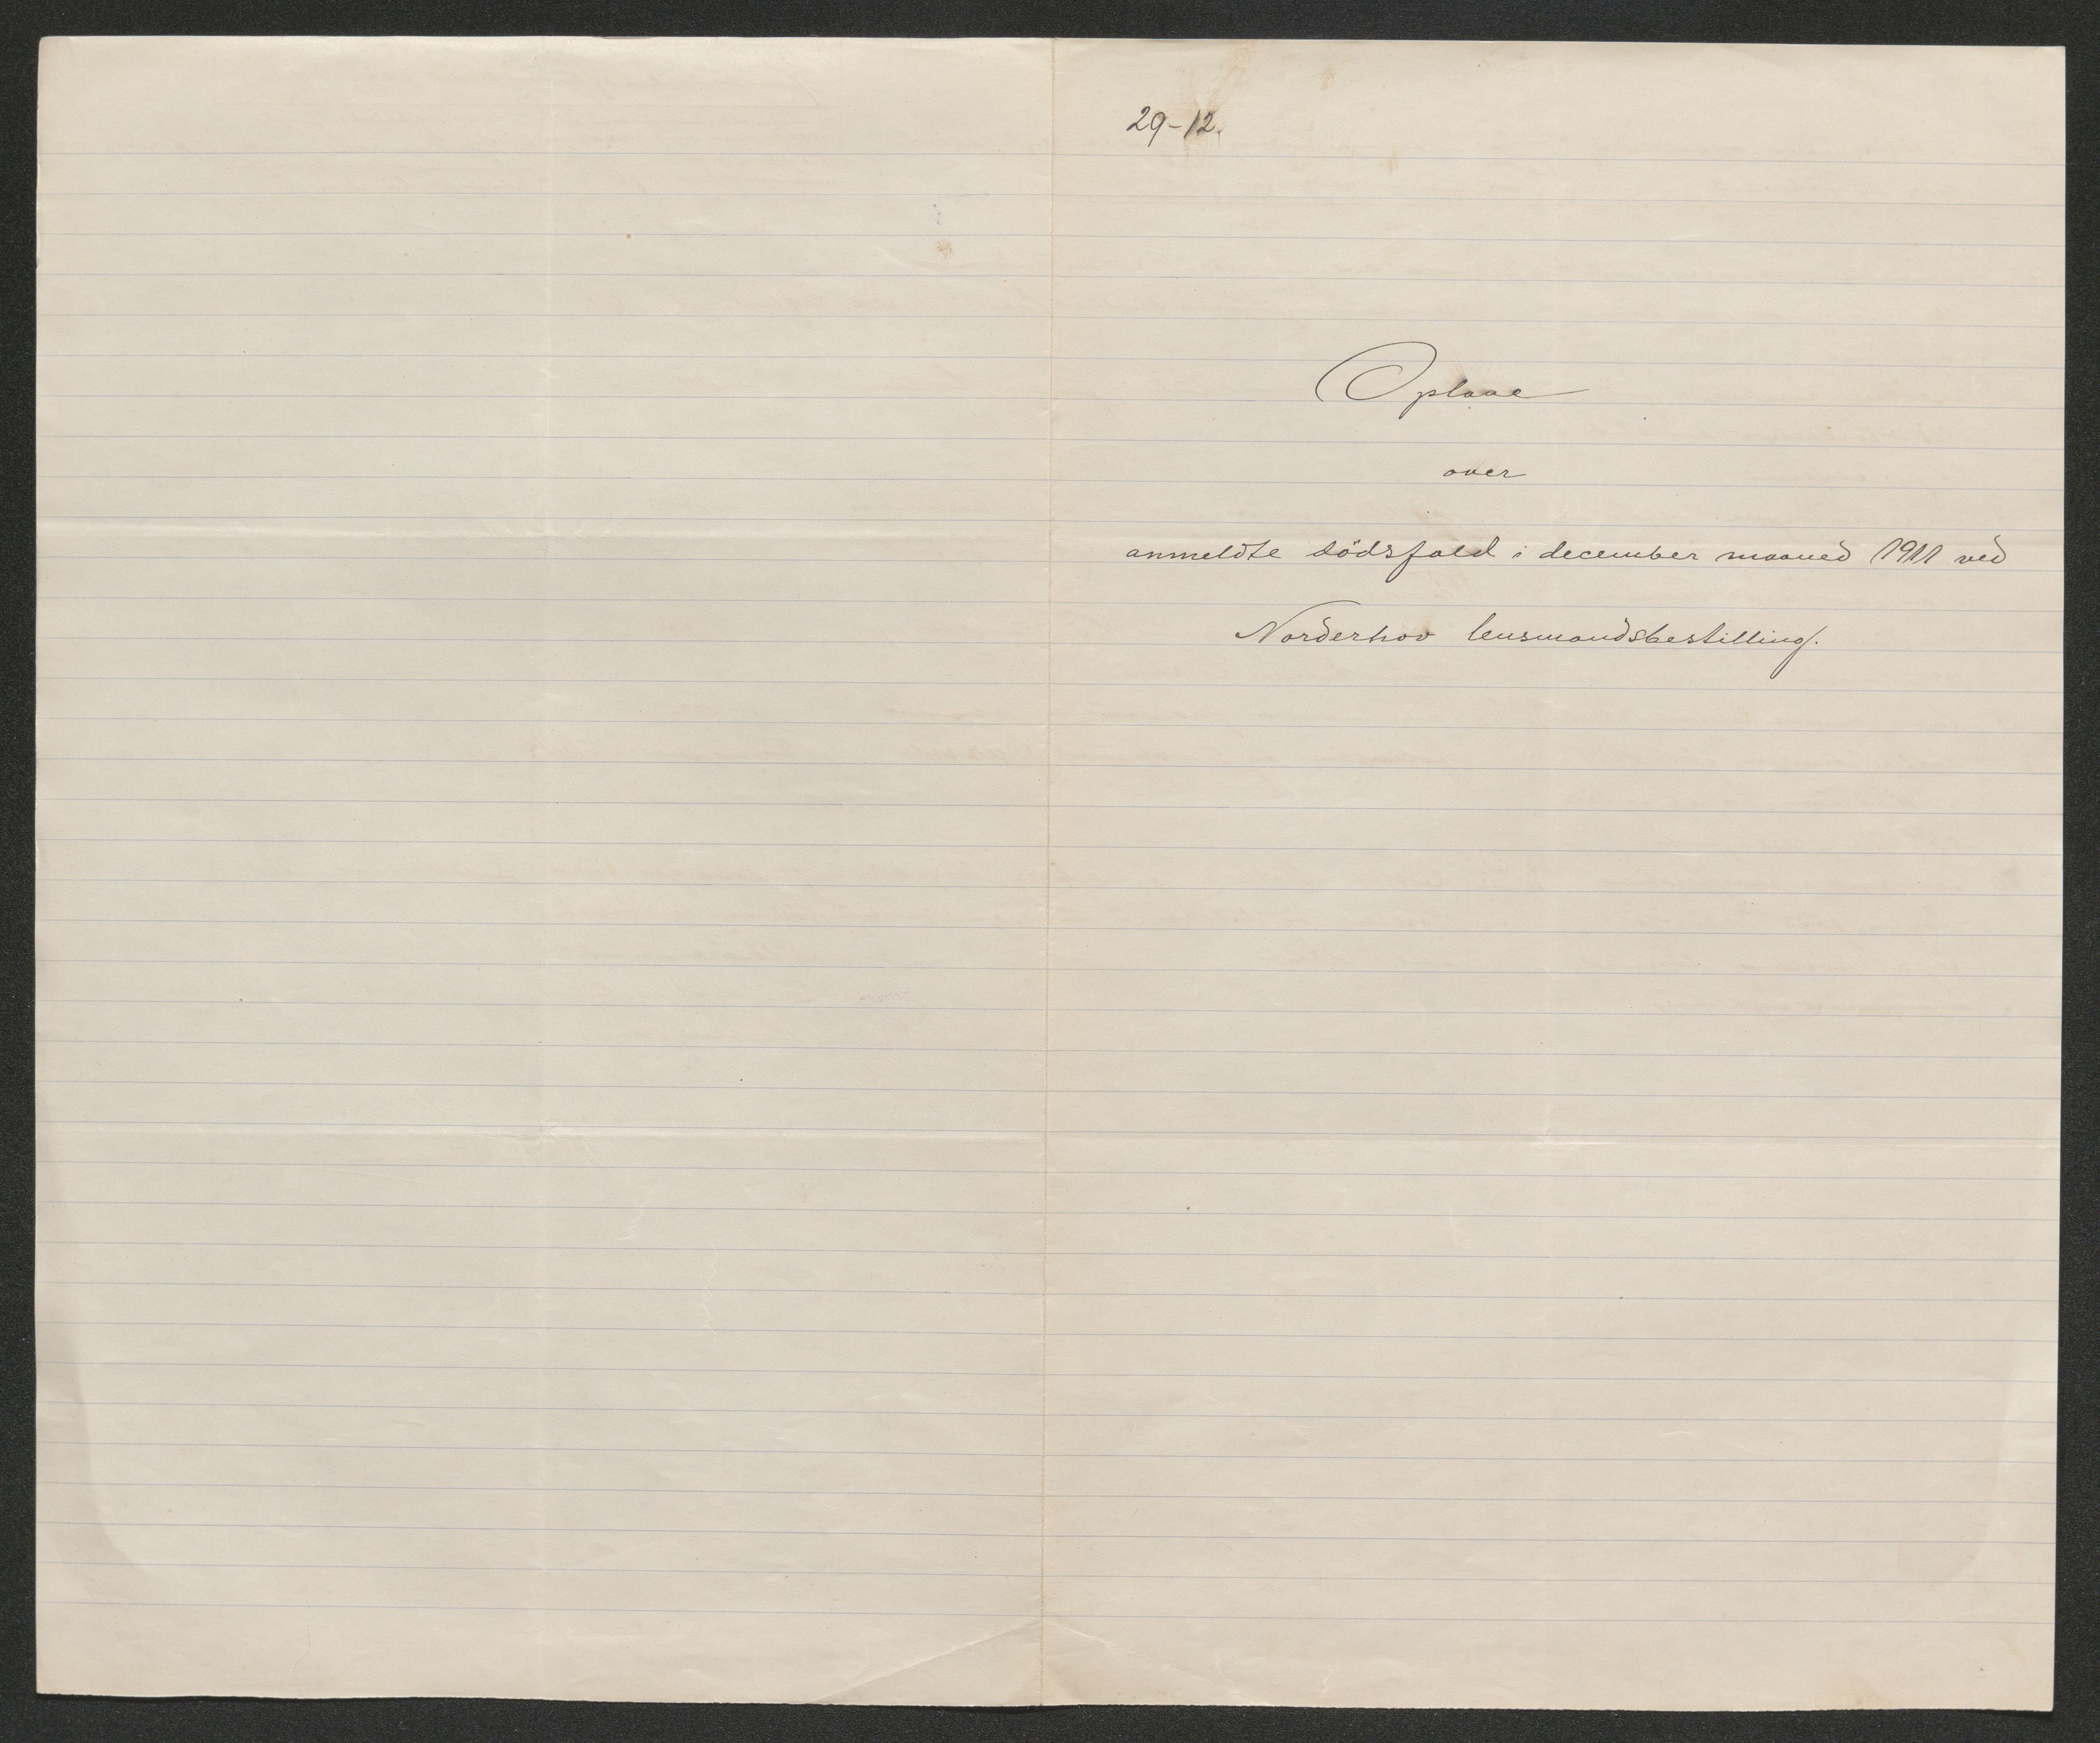 29-12.
Oplaae
over
anmeldte dödsfald i december maaned 1911 ved
Norderhov lensmandsbestilling.